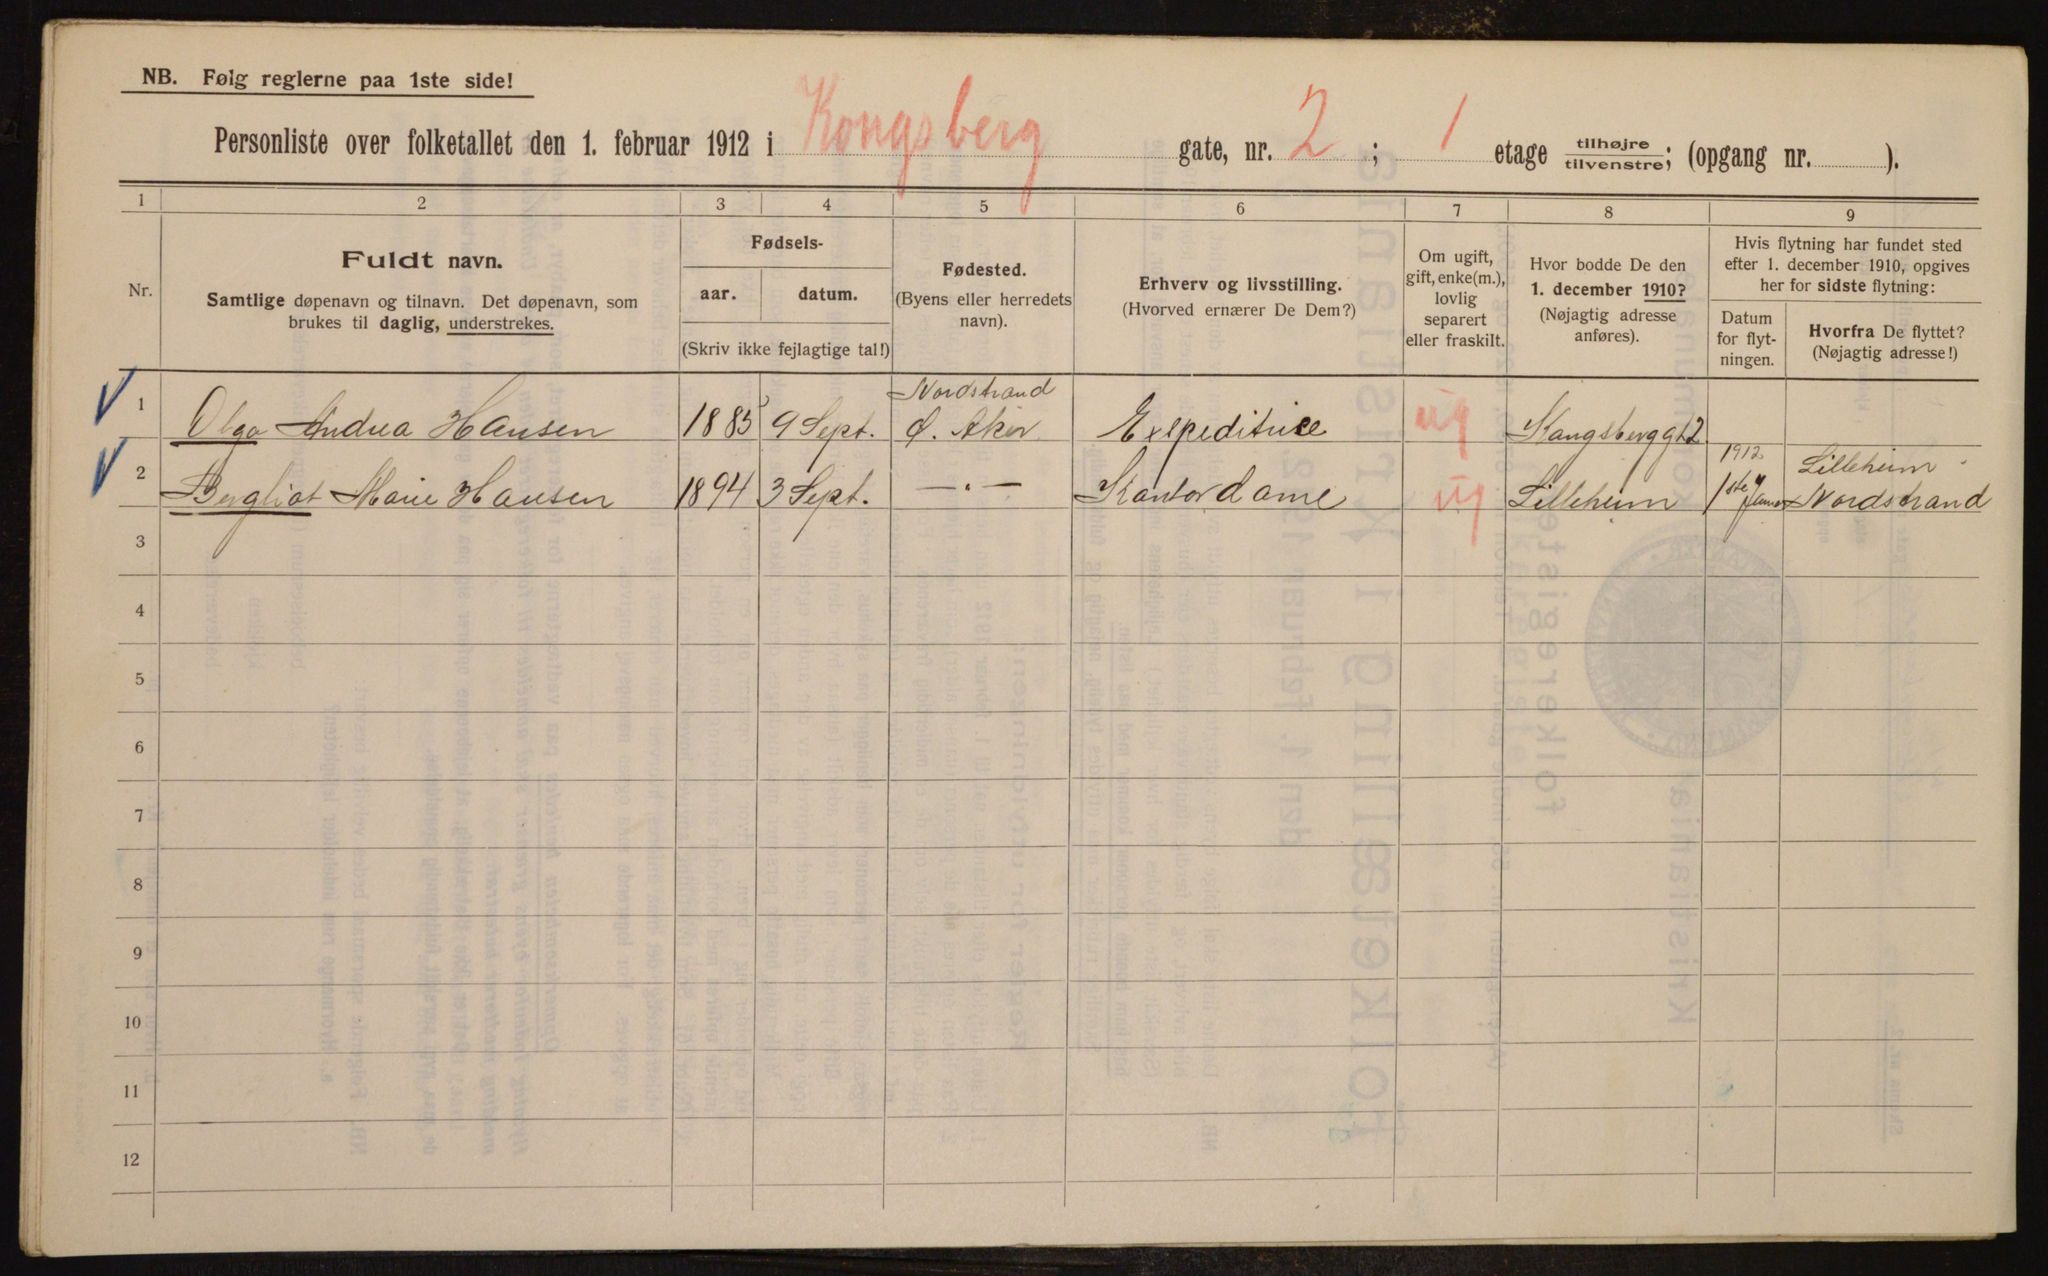 NB. Følg reglerne paa 1ste side!
Personliste over folketallet den 1. februar 1912 i Kongsberg gate, nr. 2; 1 etage tilhøjre/tilvenstre; (opgang nr. ).
1 2 3 4 5 6 7 8 9
Nr.
Fuldt navn.
Samtlige døpenavn og tilnavn. Det døpenavn, som
brukes til daglig, understrekes.
Fødsels-
aar. datum.
(Skriv ikke fejlagtige tal!)
Fødested.
(Byens eller herredets
navn).
Erhverv og livsstilling.
(Hvorved ernærer De Dem?)
Om ugift,
gift, enke(m.),
lovlig
separert
eller fraskilt.
Hvor bodde De den
1. december 1910?
(Nøjagtig adresse
anføres).
Hvis flytning har fundet sted
efter 1. december 1910, opgives
her for sidste flytning:
Datum
for flyt-
ningen.
Hvorfra De flyttet?
(Nøjagtig adresse!)
Nordstrand
1 Olga Andrea Hansen 1885 9 Sept. Ø. Aker Expeditrice ug Kongsberggt 2
1912 Lilleheim
2 Bergliot Marie Hansen 1894 3 Sept. —„— Kontordame ug Lilleheim 1ste Januar Nordstrand
3
4
5
6
7
8
9
10
11
12